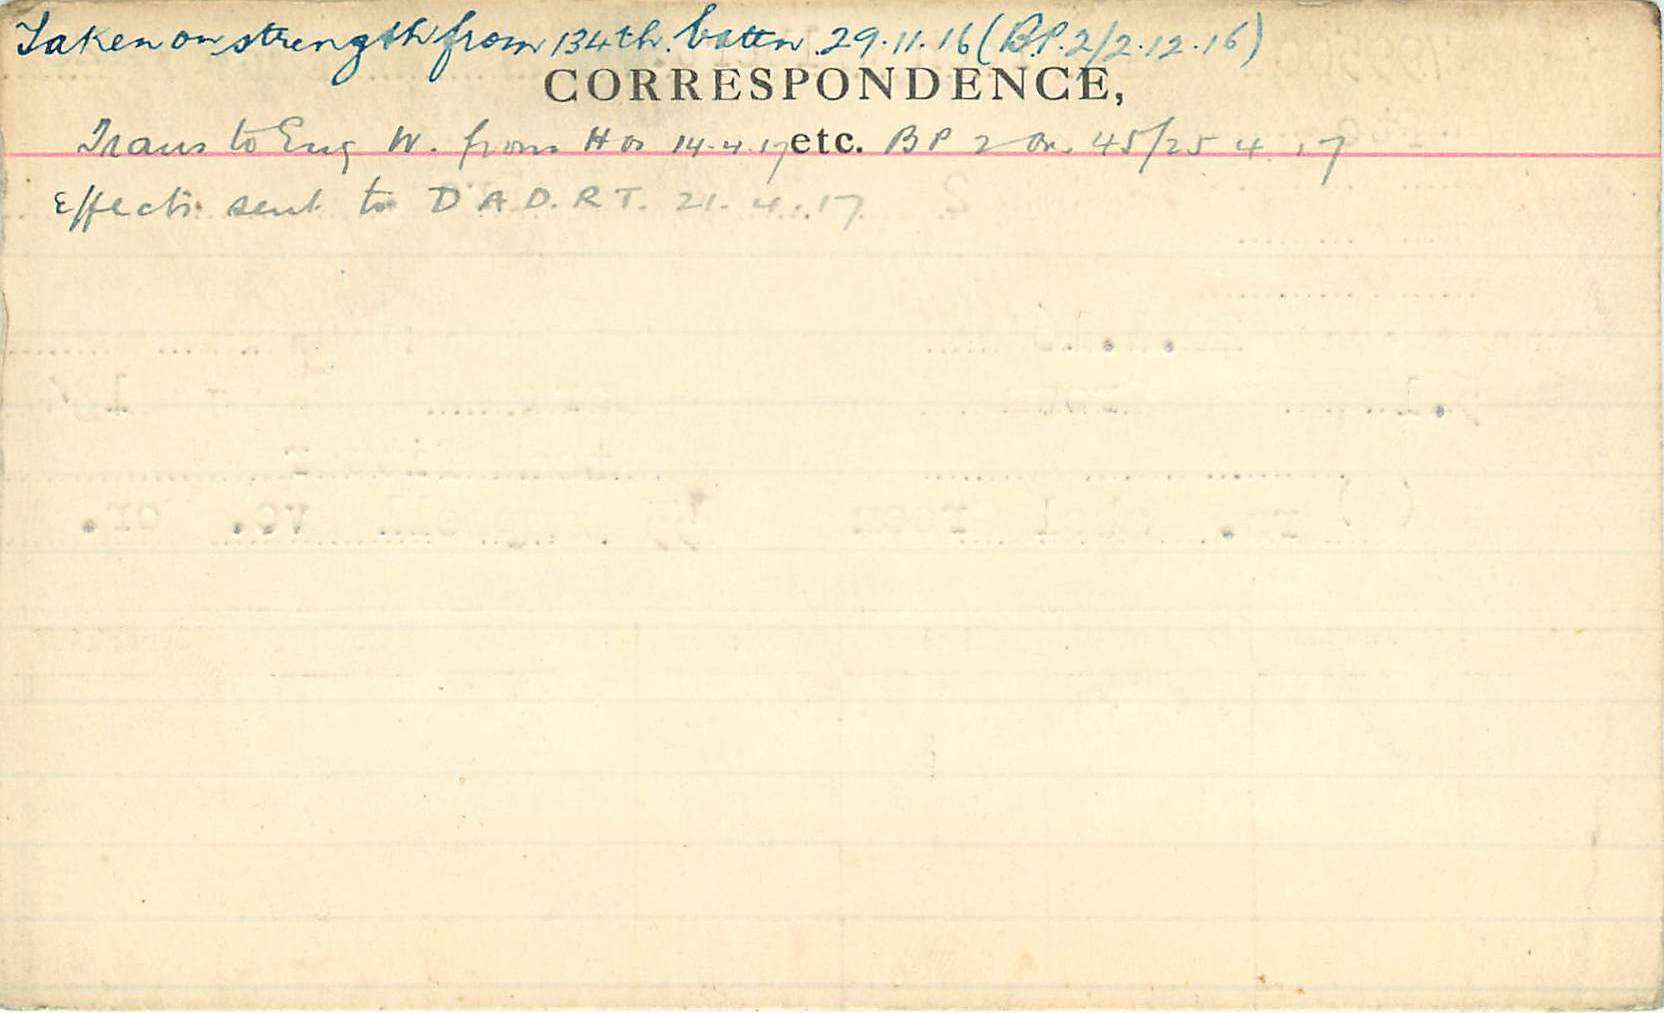 Taken on strength from 134th. battn. 29.11.16 (B.P.2/2.12.16)
CORRESPONDENCE,
Trans to Eng W. from Hos 14.4.17 etc. BP 2 On. 45/25 4.17
Effects sent to D A D. R T. 21.4.17